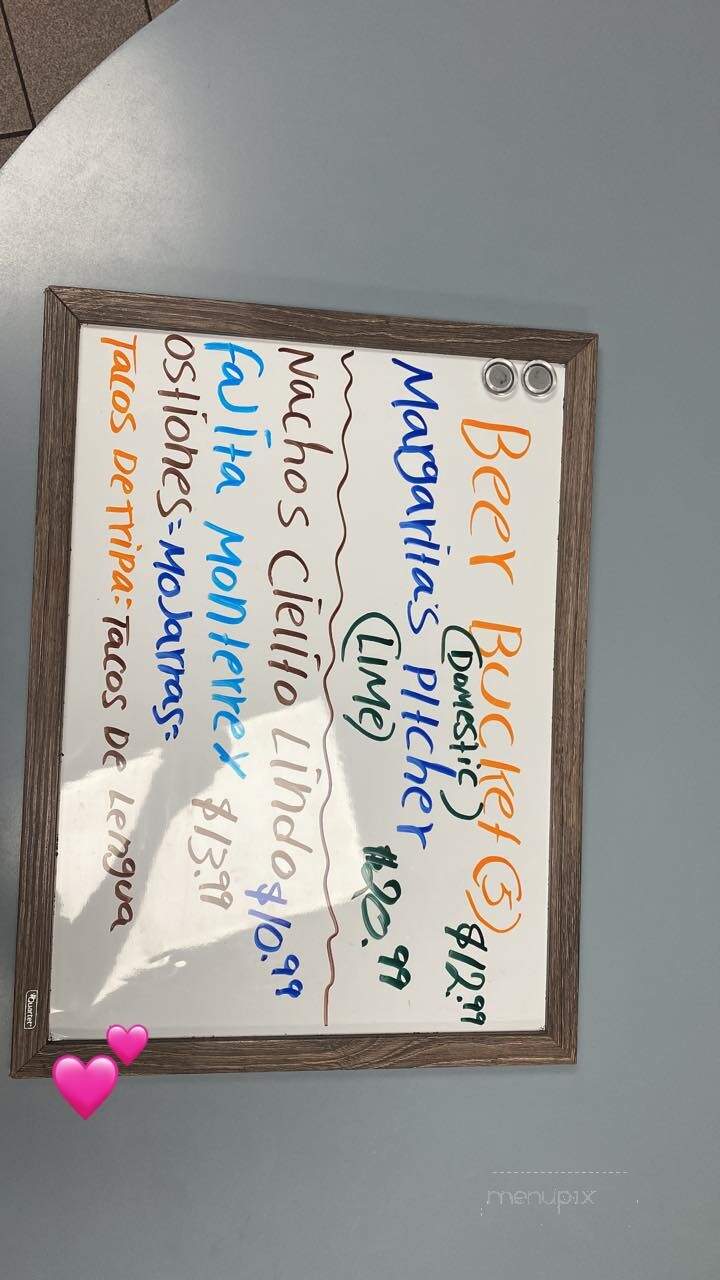 Beer Bucket (5)
(Domestic) $12.99
Margarita's Pitcher
(LIME) $20.99
Nachos Cielito Lindo $10.99
Fajita Monterrey $13.99
Ostiones = Mojarras =
Tacos De Tripa: Tacos De Lengua
Quartet
menupix